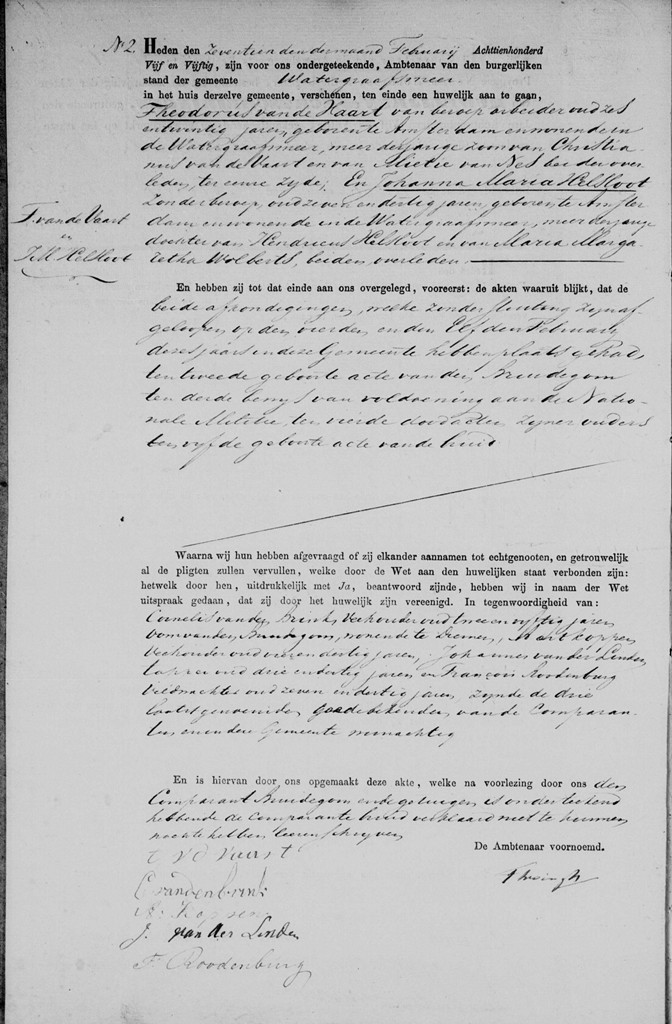 No 2. Heden den zeventienden der maand Februarij Achttienhonderd
Vijf en Vijftig, zijn voor ons ondergeteekende, Ambtenaar van den burgerlijken
stand der gemeente Watergraafsmeer
in het huis derzelve gemeente, verschenen, ten einde een huwelijk aan te gaan,
Theodorus van de Vaart van beroep arbeider oud zes
en twintig jaren, geboren te Amsterdam en wonende in
de Watergraafsmeer, meerderjarige zoon van Christia
nus van de Vaart en van Mietje van Nes beiden over
leden, ter eenre zyde; En Johanna Maria Helsloot
zonder beroep, oud zeven en dertig jaren, geboren te Amster
dam en wonende in de Watergraafsmeer, meerderjarige
dochter van Hendricus Helsloot en van Maria Marga
retha Wolberts, beiden overleden.
T. van de Vaart
en
J.M. Helsloot
En hebben zij tot dat einde aan ons overgelegd, vooreerst: de akten waaruit blijkt, dat de
beide afkondigingen, welke zonder stuiting zyn af
geloopen op den vierden en den Elfden Februarij
dezes jaars in deze Gemeente hebben plaats gehad,
ten tweede geboorte acte van den Bruidegom
ten derde bewys van voldoening aan de Natio-
nale Militie, ten vierde dood acten zyner ouders
ten vyfde geboorte acte van de bruid
Waarna wij hun hebben afgevraagd of zij elkander aannamen tot echtgenooten, en getrouwelijk
al de pligten zullen vervullen, welke door de Wet aan den huwelijken staat verbonden zijn:
hetwelk door hen, uitdrukkelijk met Ja, beantwoord zijnde, hebben wij in naam der Wet
uitspraak gedaan, dat zij door het huwelijk zijn vereenigd. In tegenwoordigheid van:
Cornelis van den Brink, Veehouder oud twee en vyftig jaren
oom van den Bruidegom, wonende te Diemen,
Veehouder oud vier en dertig jaren, Johannes van der Linden
tapper oud drie en dertig jaren en François Roodenburg
Veldwachter oud zeven en dertig jaren, zynde de drie
laatstgenoemden goede bekenden van de Comparan-
ten en in deze Gemeente woonachtig
En is hiervan door ons opgemaakt deze akte, welke na voorlezing door ons den
Comparant Bruidegom en de getuigen is onderteekend
hebbende de Comparante bruid verklaard niet te kunnen
nochte hebben leeren schryven
De Ambtenaar voornoemd.
t v d Vaart
C van den brink
J. van der Linden
F. Roodenburg